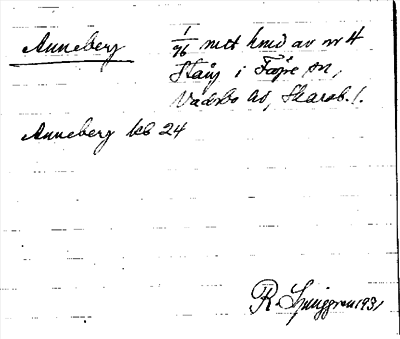 Anneberg
1/96 mtt hmd av nr 4
Stång i Fägre sn,
Vadsbo hd, Skarab. l.
Anneberg kb 24
R. Ljunggren 1931